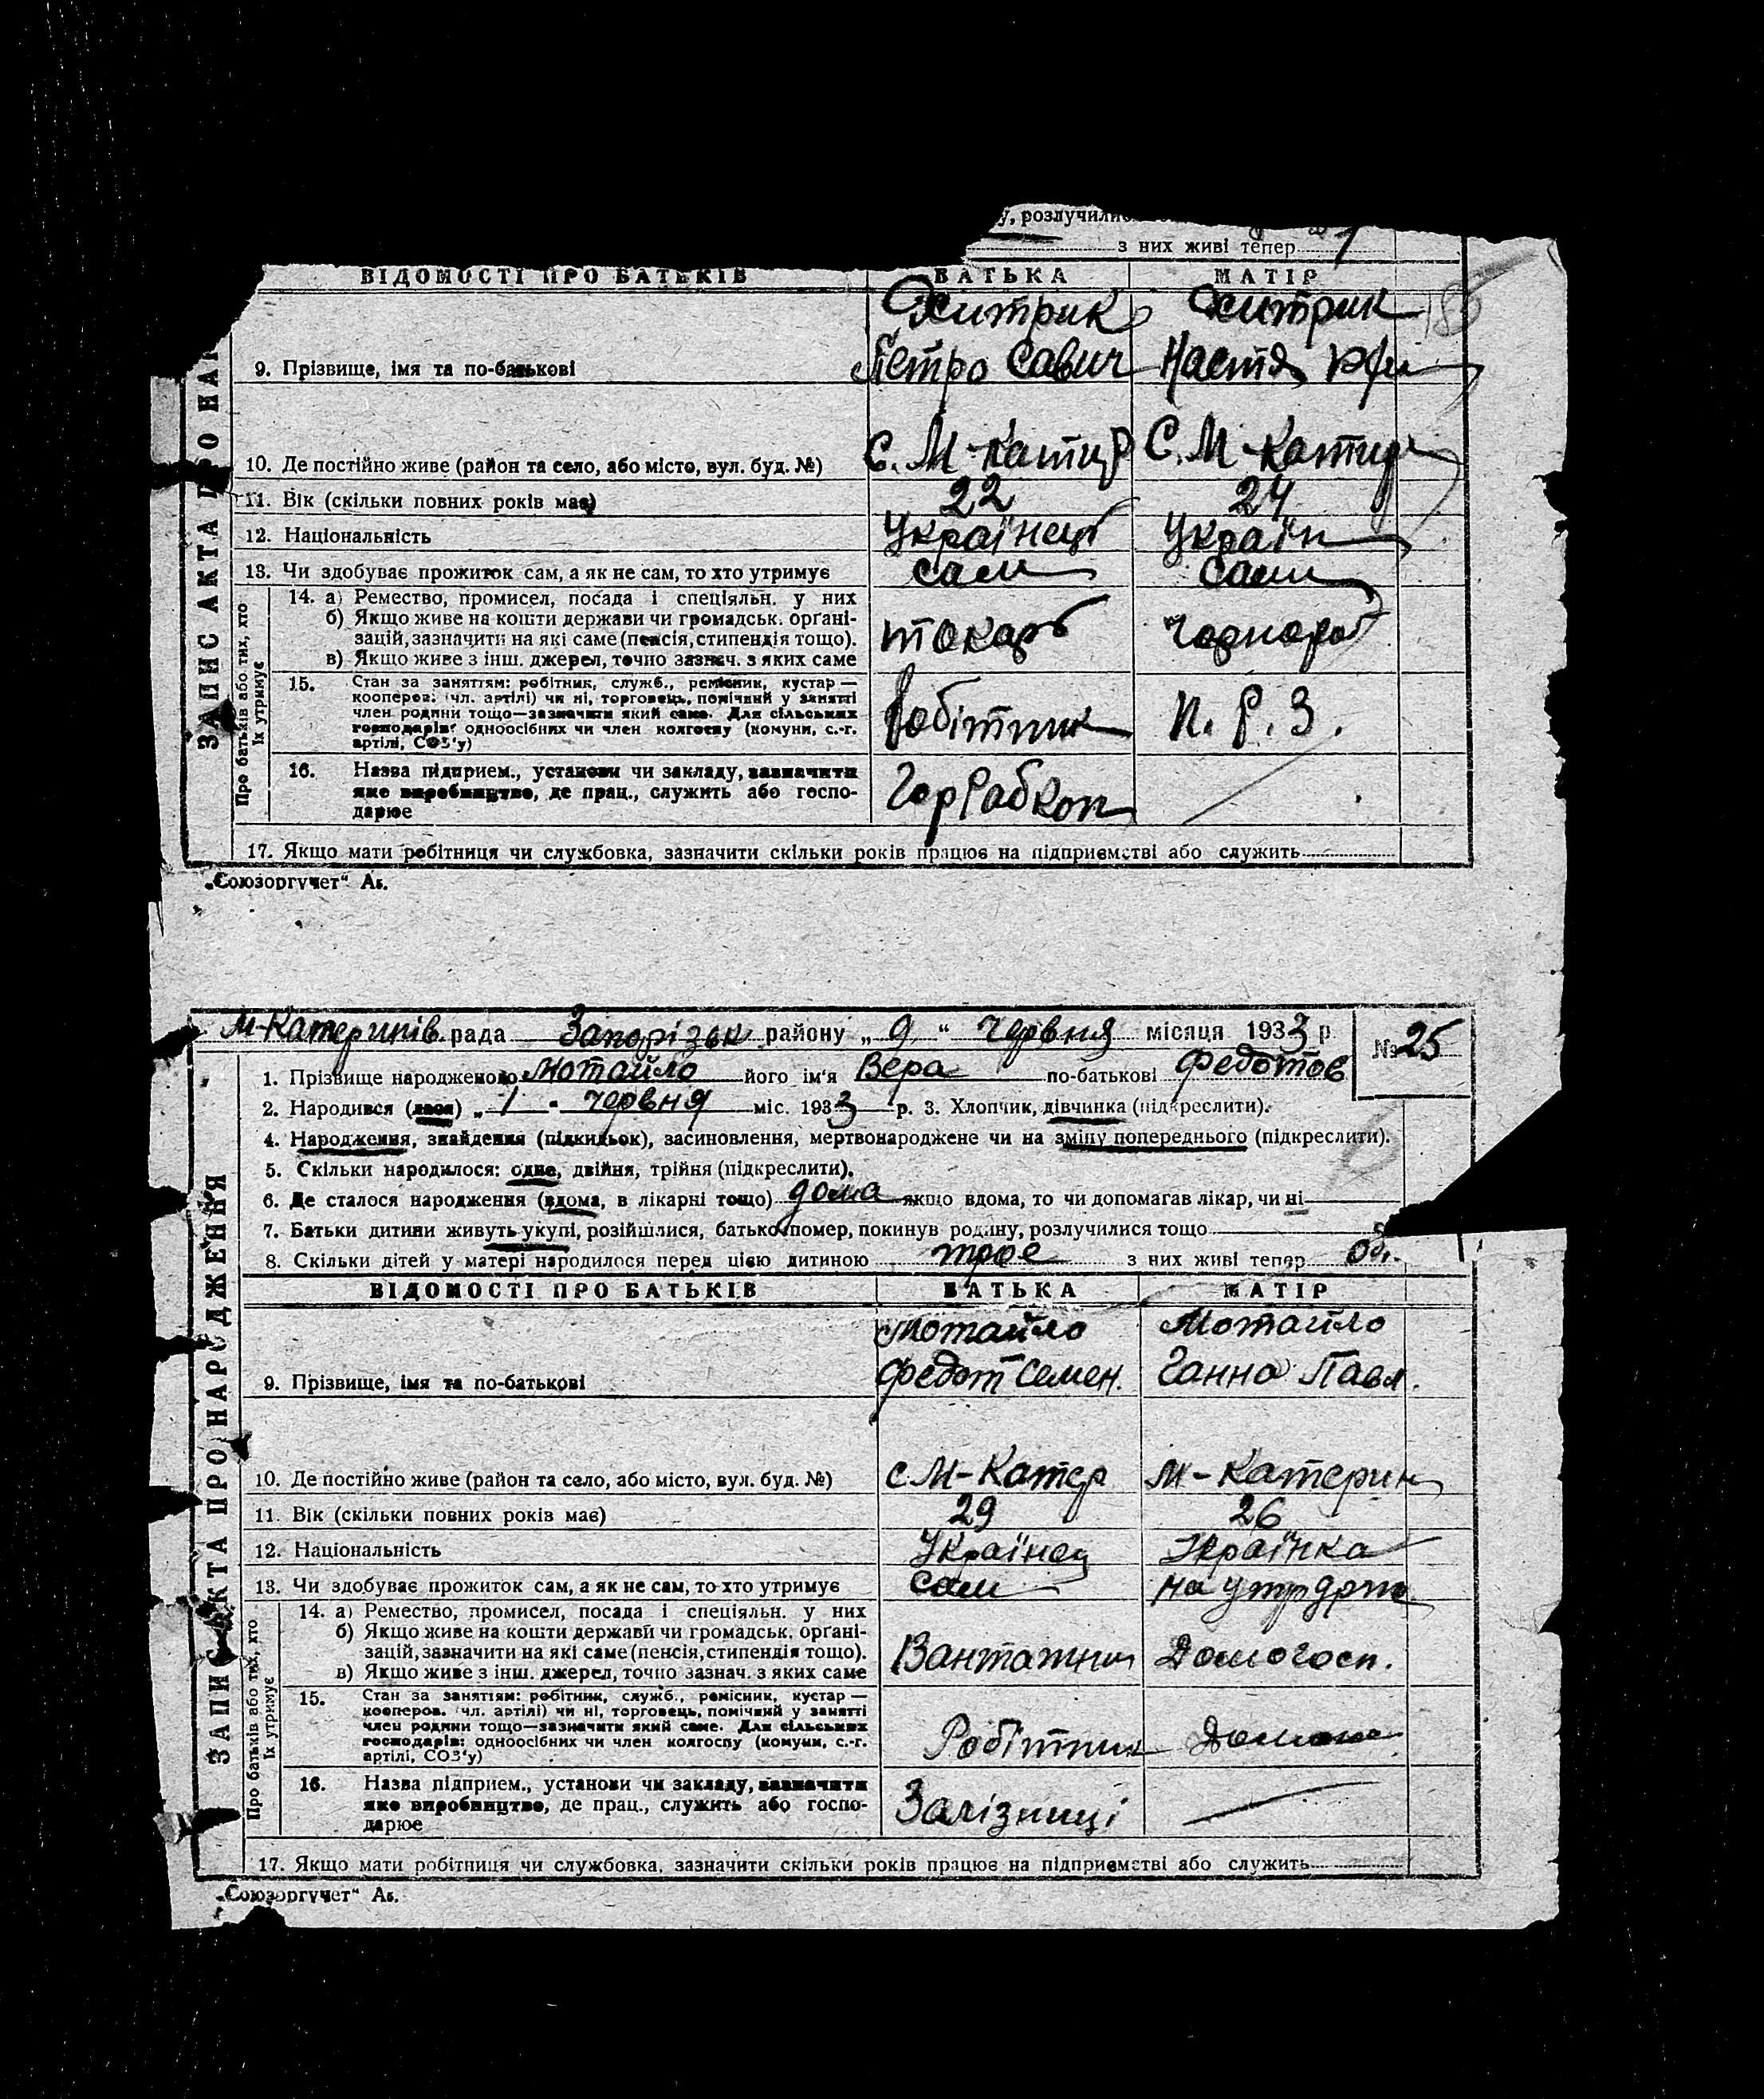 у, розлучили
з них живі тепер 1
ВІДОМОСТІ ПРО БАТЬКІВ БАТЬКА МАТІР
Хитрик Хитрик
9. Прізвище, імя та по-батькові Петро Савич Настя
10. Де постійно живе (район та село, або місто, вул. буд. №) С. М-Катир С. М-Катир
11. Вік (скільки повних років має) 22 24
12. Національність Українець Україн
13. Чи здобуває прожиток сам, а як не сам, то хто утримує сам сам
ЗАПИС АКТА ПРО НАР
Про батьків або тих, хто
їх утримує
14. а) Ремество, промисел, посада і спеціяльн. у них
б) Якщо живе на кошти держави чи громадськ. орґані-
зацій, зазначити на які саме (пенсія, стипендія тощо).
в) Якщо живе з інш. джерел, точно зазнач. з яких саме
токарь Чорнороб
15. Стан за заняттям: робітник, служб., ремісник, кустар —
коопероз. (чл. артілі) чи ні, торговець, помічний у занятті
член родини тощо—зазначити який саме. Для сільських
господарів: одноосібних чи член колгоспу (комуни, с.-г.
артілі, СОЗ'у)
Робітник Н. Р. З.
16. Назва підприєм., установи чи закладу, зазначити
яке виробництво, де прац., служить або госпо-
дарює
ГорРабКоп
17. Якщо мати робітниця чи службовка, зазначити скільки років працює на підприємстві або служить
„Союзоргучет“ Аг.
М-Катеринів. рада Запорізьк району „9“ Червня місяця 1933 р. № 25
1. Прізвище народженого Мотайло його ім'я Вера по-батькові Федотов
2. Народився (лася) „1“ червня міс. 1933 р. 3. Хлопчик, дівчинка (підкреслити).
4. Народження, знайдення (підкидьок), засиновлення, мертвонароджене чи на зміну попереднього (підкреслити).
5. Скільки народилося: одне, двійня, трійня (підкреслити).
6. Де сталося народження (вдома, в лікарні тощо) дома якщо вдома, то чи допомагав лікар, чи ні
7. Батьки дитини живуть укупі, розійшлися, батько помер, покинув родину, розлучилися тощо
8. Скільки дітей у матері народилося перед цією дитиною трое з них живі тепер
ВІДОМОСТІ ПРО БАТЬКІВ БАТЬКА МАТІР
Мотайло Мотайло
9. Прізвище, імя та по-батькові Федот Семен. Ганна Павл.
10. Де постійно живе (район та село, або місто, вул. буд. №) с М-Катер М-Катерин
11. Вік (скільки повних років має) 29 26
12. Національність Українец Українка
13. Чи здобуває прожиток сам, а як не сам, то хто утримує сам на
ЗАПИС АКТА ПРО НАРОДЖЕННЯ
Про батьків або тих, хто
їх утримує
14. а) Ремество, промисел, посада і спеціяльн. у них
б) Якщо живе на кошти держави чи громадськ. орґані-
зацій, зазначити на які саме (пенсія, стипендія тощо).
в) Якщо живе з інш. джерел, точно зазнач. з яких саме
Вантажник Домогосп.
15. Стан за заняттям: робітник, служб., ремісник, кустар —
кооперов. (чл. артілі) чи ні, торговець, помічний у занятті
член родини тощо—зазначити який саме. Для сільських
господарів: одноосібних чи член колгоспу (комуни, с.-г.
артілі, СОЗ'у)
Робітник
16. Назва підприєм., установи чи закладу, зазначити
яке виробництво, де прац., служить або госпо-
дарює
Залізниці
17. Якщо мати робітниця чи службовка, зазначити скільки років працює на підприємстві або служить
„Союзоргучет“ Аг.